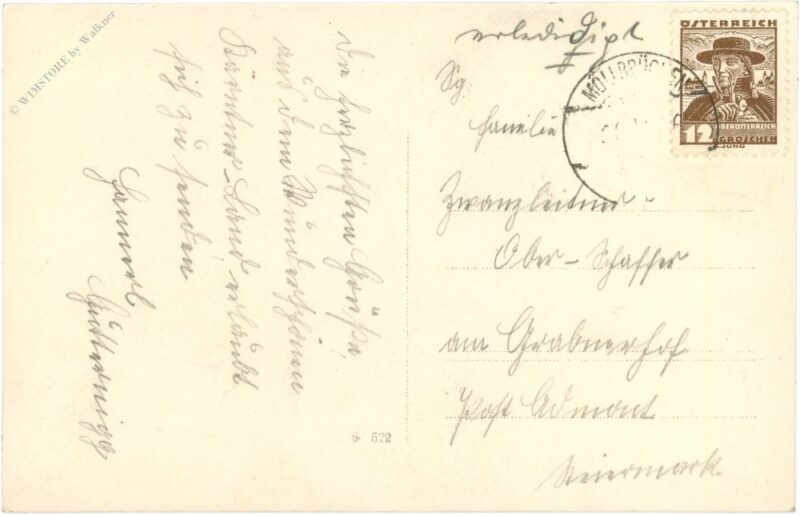 © WIMSTORE by Walkner
Die herzlichsten Grüße,
aus dem Wunderschönen
Kärntner-Land, erlaubt
sich zu senden,
Hannerl
erledigt
Familie
Zwanzleitner
Ober-Schaffer
am Grabnerhof
Post Admont
Steiermark.
MÖLLBRÜCKE
ÖSTERREICH
12
OBERÖSTERREICH
GROSCHEN
JUNG
522